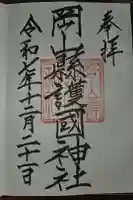 奉拝
岡山縣護國神社
令和七年十二月二十一日